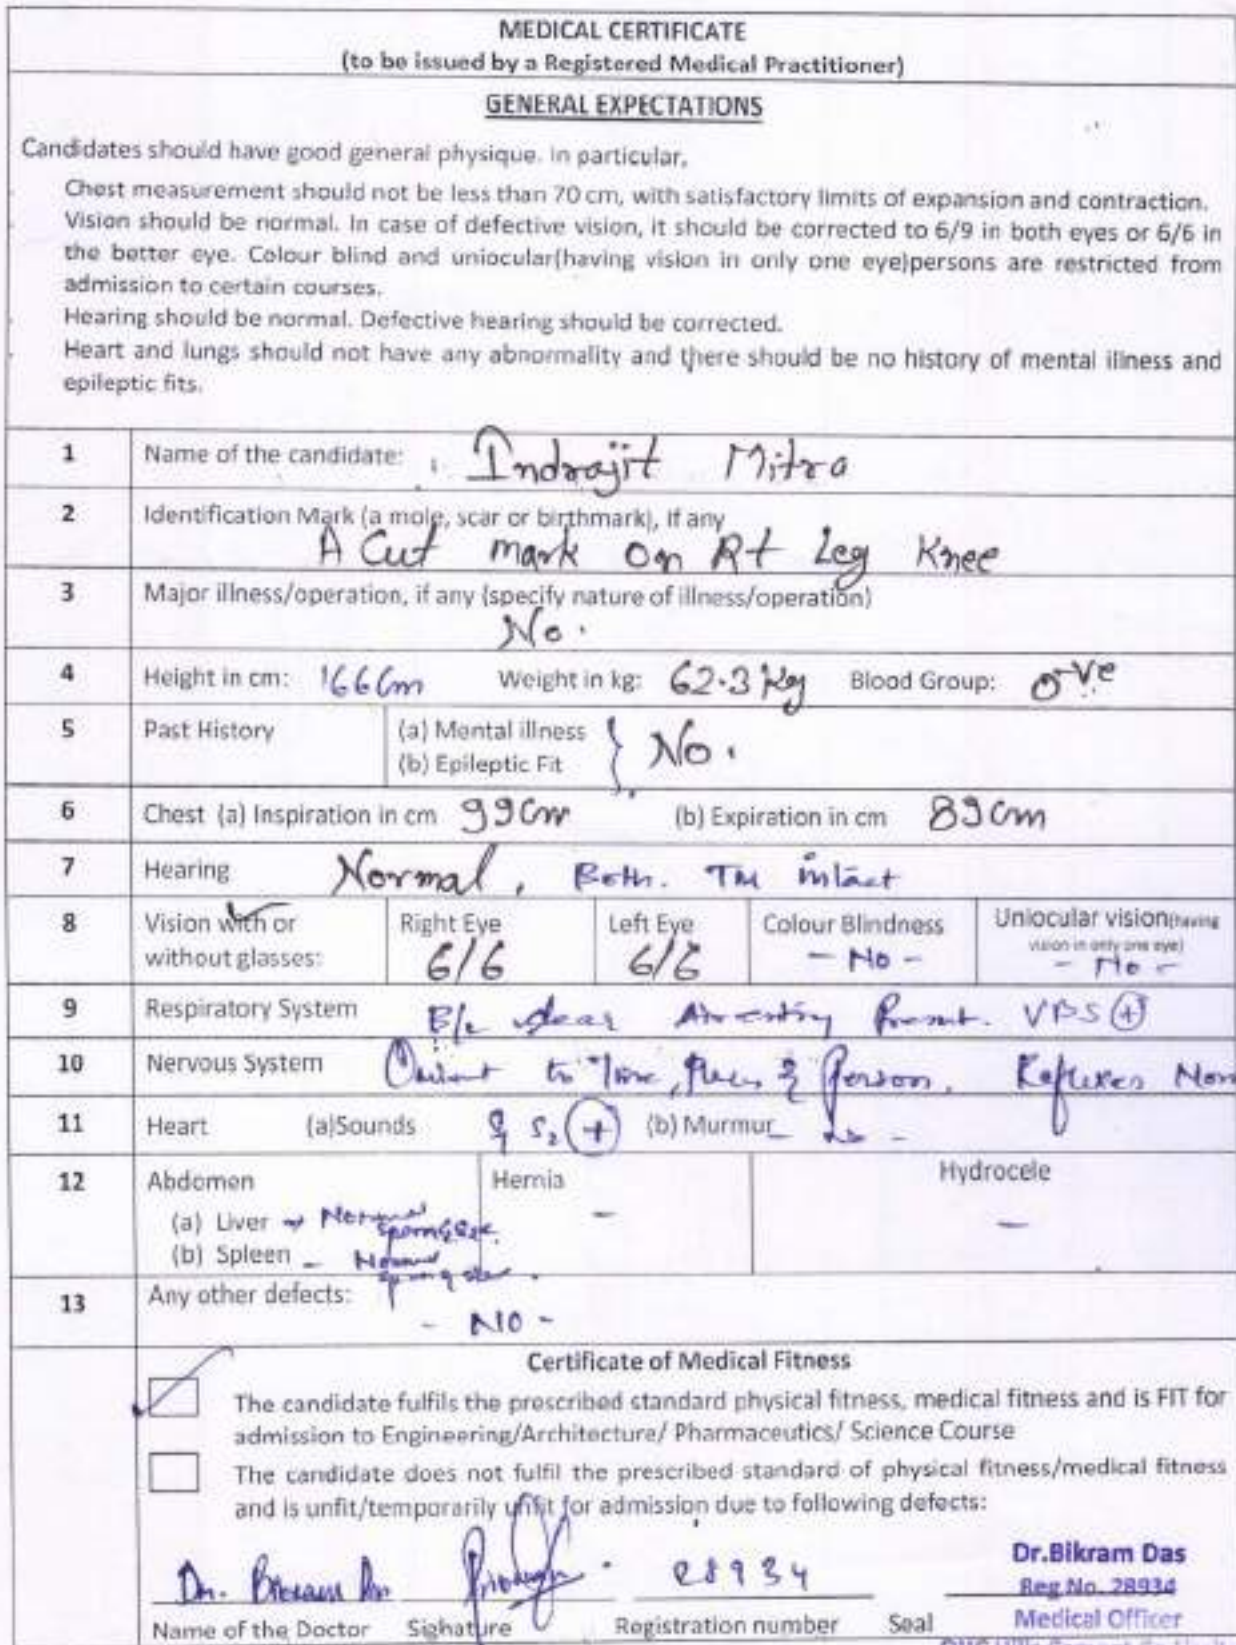 MEDICAL CERTIFICATE
(to be issued by a Registered Medical Practitioner)
GENERAL EXPECTATIONS
Candidates should have good general physique. In particular,
Chest measurement should not be less than 70 cm, with satisfactory limits of expansion and contraction.
Vision should be normal. In case of defective vision, it should be corrected to 6/9 in both eyes or 6/6 in
the better eye. Colour blind and uniocular(having vision in only one eye)persons are restricted from
admission to certain courses.
Hearing should be normal. Defective hearing should be corrected.
Heart and lungs should not have any abnormality and there should be no history of mental illness and
epileptic fits.
1 Name of the candidate: Indrajit Mitra
2 Identification Mark (a mole, scar or birthmark), if any
A Cut mark on Rt Leg Knee
3 Major illness/operation, if any (specify nature of illness/operation)
No.
4 Height in cm: 166 Cm Weight in kg: 62.3 Kg Blood Group: O-ve
5 Past History (a) Mental illness
(b) Epileptic Fit } No.
6 Chest (a) Inspiration in cm 99 Cm (b) Expiration in cm 89 Cm
7 Hearing Normal, Both. TM intact
8 Vision with or Right Eye Left Eye Colour Blindness Uniocular vision(having
without glasses: 6/6 6/6 - No - vision in only one eye)
- No -
9 Respiratory System B/L clear Air entry Present. VBS (+)
10 Nervous System Orient to Time, place & Person. Reflexes Nor
11 Heart (a)Sounds S1 S2 (+) (b) Murmur
12 Abdomen Hernia Hydrocele
(a) Liver → Normal - -
(b) Spleen - Normal
13 Any other defects:
- NO -
Certificate of Medical Fitness
The candidate fulfils the prescribed standard physical fitness, medical fitness and is FIT for
admission to Engineering/Architecture/ Pharmaceutics/ Science Course
The candidate does not fulfil the prescribed standard of physical fitness/medical fitness
and is unfit/temporarily unfit for admission due to following defects:
Dr.Bikram Das
Dr. Bikram Das 28934 Reg.No. 28934
Name of the Doctor Signature Registration number Seal Medical Officer